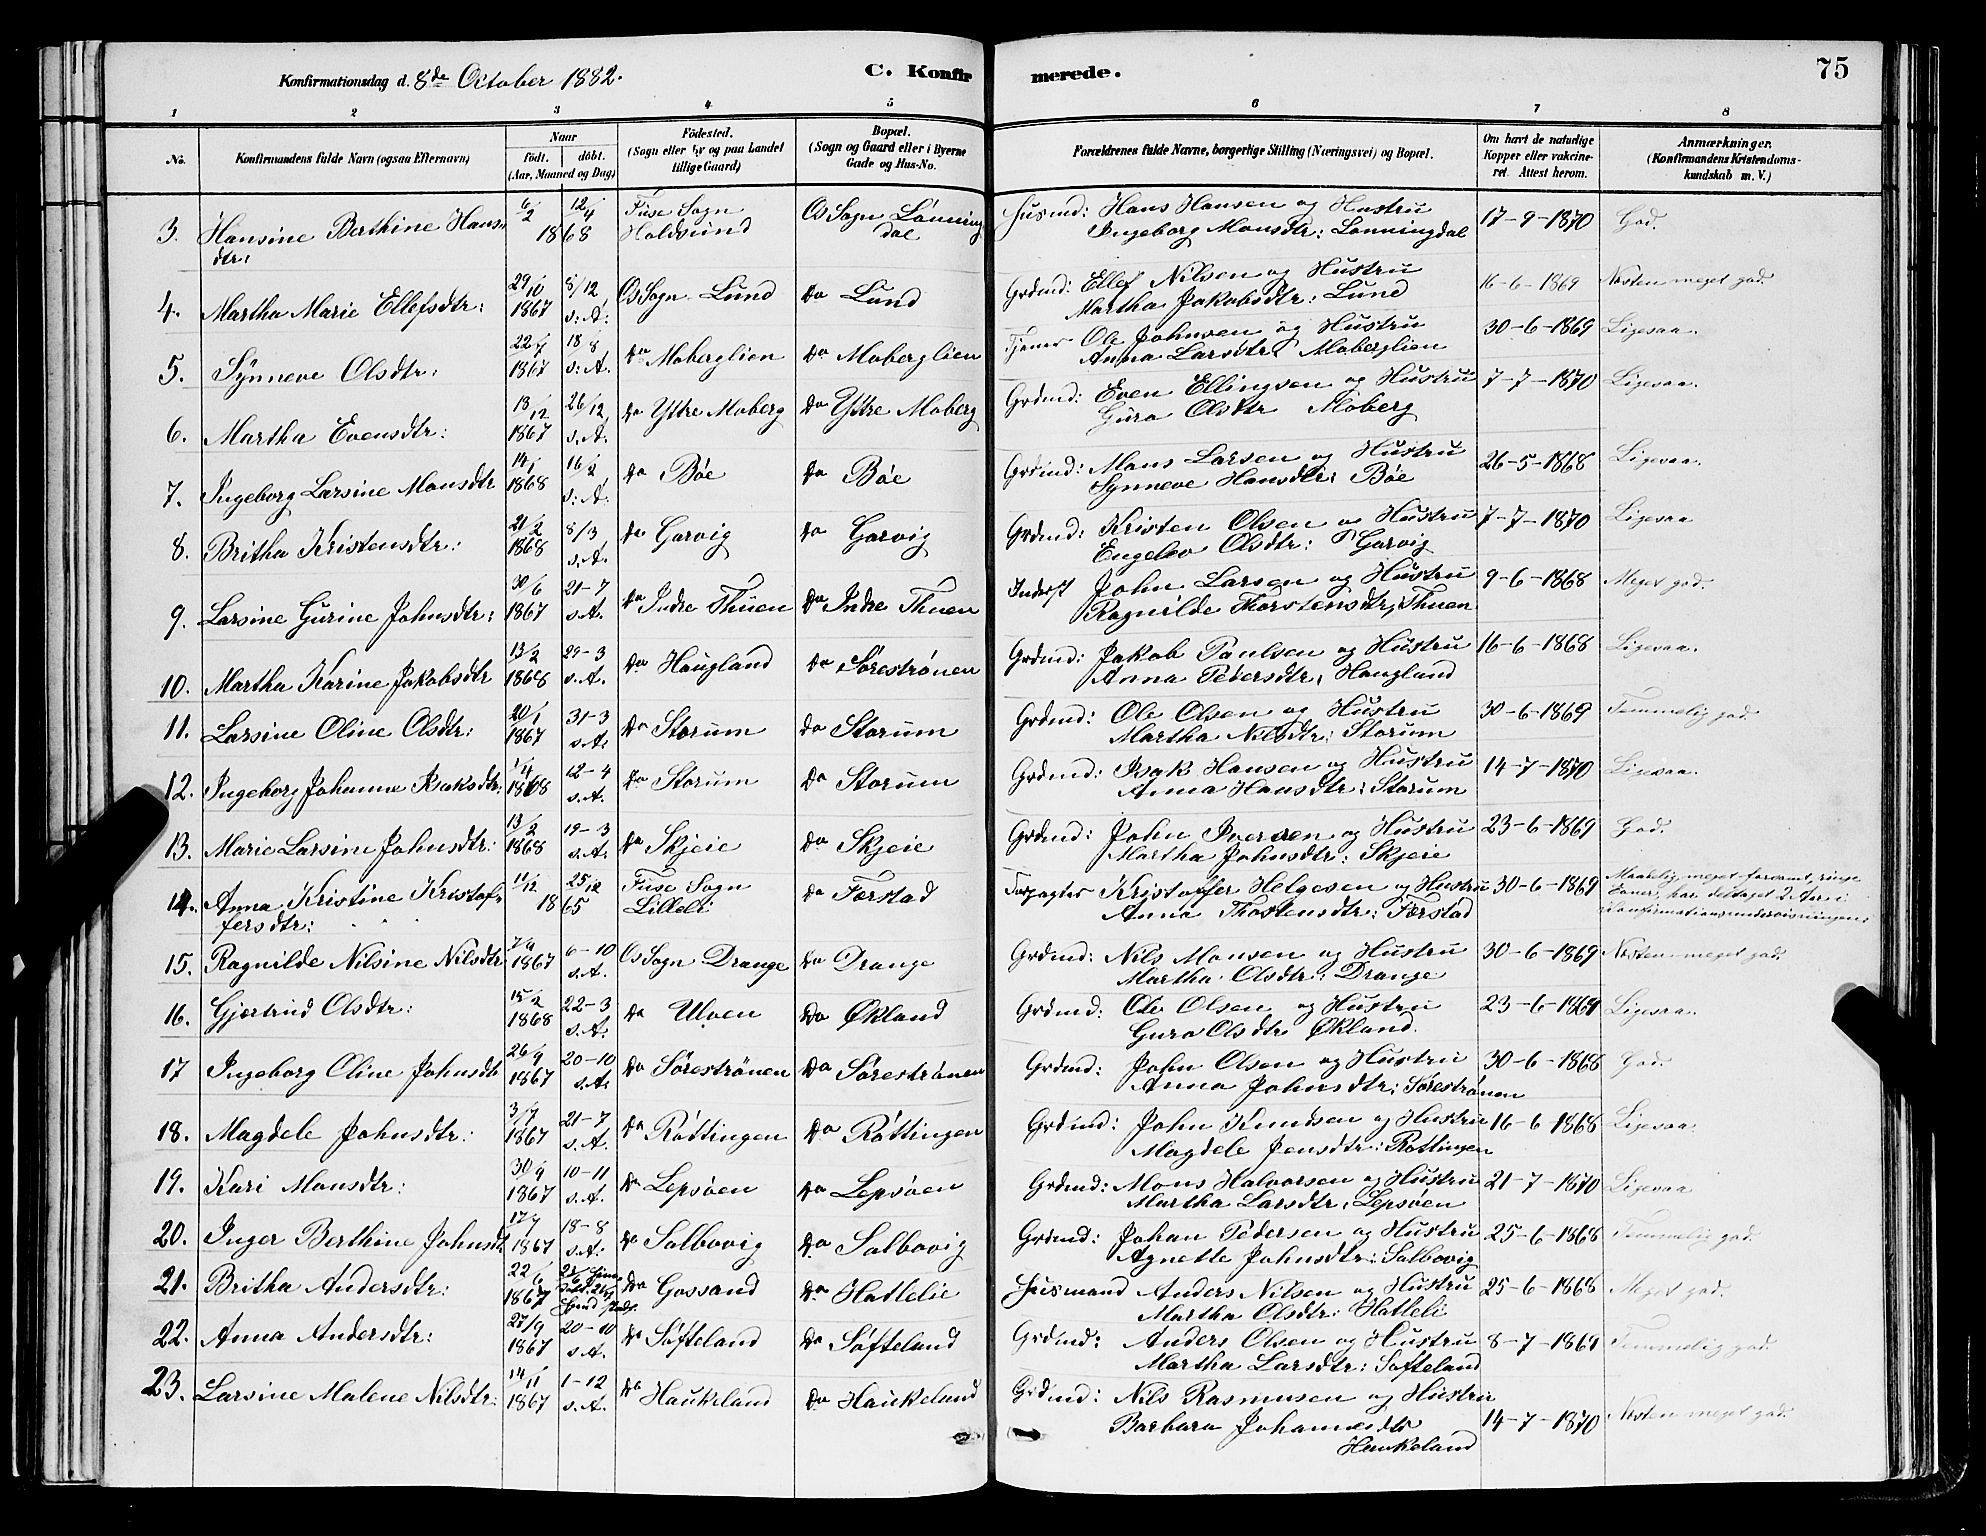 Konfirmationsdag d. 8de October 1882.
C. Konfirmerede.
75
1 2 3 4 5 6 7 8
No.
Konfirmandens fulde Navn (ogsaa Efternavn)
Naar
födt. döbt.
(Aar, Maaned og Dag)
Födested.
(Sogn eller By og paa Landet
tillige Gaard)
Bopæl.
(Sogn og Gaard eller i Byerne
Gade og Hus-No.
Forældrenes fulde Navne, borgerlige Stilling (Næringsvei) og Bopæl.
Om havt de naturlige
Kopper eller vakcine-
ret. Attest herom.
Anmærkninger.
(Konfirmandens Kristendoms-
kundskab m. V.)
3. Hansine Berthine Hans- 6/2 12/4 Fuse Sogn Os Sogn Lønning Husmd: Hans Hansen og Hustru 17-9-1870 God.
dtr: 1868 Holdsund dal Ingeborg Monsdtr: Lønningdal
4. Martha Marie Ellefsdtr: 29/10 8/12 Os Sogn Lund Do Lund Grdmd: Ellef Nilsen og Hustru 16-6-1869 Næsten meget god.
1867 s: A: Martha Jakobsdtr: Lund
5. Synneve Olsdtr: 22/7 18/8 Do Moberglien Do Moberglien Tjener Ole Johnsen og Hustru 30-6-1869 Ligesaa.
1867 s: A. Anna Larsdtr: Moberglien
6. Martha Evensdtr: 13/12 26/12 Do Yttre Moberg Do Yttre Moberg Grdmd: Even Ellingsen og Hustru 7-7-1870 Ligesaa.
1867 s. A. Guro Olsdtr Moberg
7. Ingeborg Larsine Monsdtr 14/1 16/2 Do Bøe Do Bøe Grdmd: Mons Larsen og Hustru 26-5-1868 Ligesaa.
1868 s: A: Synneve Hansdtr: Bøe
8. Britha Kristensdtr: 21/2 8/3 Do Garvig Do Garvig Grdmd: Kristen Olsen og Hustru 7-7-1870 Ligesaa
1868 s. A. Engelev Olsdtr: Garvig
9. Larsine Gurine Johnsdtr: 30/6 21-7 Do Indre Thuen Do Indre Thuen Inderst John Larsen og Hustru 9-6-1868 Meget god.
1867 s A. Ragnilde Thorstensdtr, Thuen
10. Martha Karine Jakobsdtr 13/2 29-3 Do Haugland Do Sørestrønen Grdmd: Jakob Paulsen og Hustru 16-6-1868 Ligesaa.
1868 s. A. Anna Pedersdtr, Haugland
11. Larsine Oline Olsdtr: 20/1 31-3 Do Storum Do Storum Grdmd: Ole Olsen og Hustru 30-6-1869 Temmelig god.
1867 s. A. Martha Nilsdtr: Storum
12. Ingeborg Johanne Isaksdtr: 1/4 12-4 Do Storum Do Storum Grdmd: Isak Hansen og Hustru 14-7-1870 Ligesaa.
1868 s. A. Anna Hansdtr: Storum
13. Marie Larsine Johnsdtr: 13/2 19-3 Do Skjeie Do Skjeie Grdmd: John Iversen og Hustru 23-6-1869 God.
1868 s. A. Martha Johnsdtr: Skjeie
14. Anna Kristine Kristof- 11/12 25/12 Fuse Sogn Do Førstad Forpagter Kristoffer Helgesen og Hustru 30-6-1869 Maadelig, meget forsømt, ringe
fersdtr: 1865 Lilleli Anna Thostensdtr: Førstad Evner, har deltaget 2 Aar i
Konfirmationsundervisningen.
15. Ragnilde Nilsine Nilsdtr 7/9 6-10 Os Sogn Drange Do Drange Grdmd: Nils Monsen og Hustru 30-6-1869 Næsten meget god.
1867 s. A. Martha Olsdtr: Drange
16. Gjertrud Olsdtr: 15/2 22-3 Do Ulven Do Økland Grdmd: Ole Olsen og Hustru 23-6-1869 Ligesaa.
1868 s. A. Guro Olsdtr Økland.
17 Ingeborg Oline Johnsdtr 26/9 20-10 Do Sørestrønen Do Sørestrønen Grdmd: John Olsen og Hustru 30-6-1868 God.
1867 s. A. Anna Johnsdtr: Sørestrønen
18. Magdele Johnsdtr: 3/7 21-7 Do Røttingen Do Røttingen Grdmd: John Knudsen og Hustru 16-6-1868 Ligesaa.
1867 s. A. Magdele Jensdtr: Røttingen
19. Kari Monsdtr: 30/9 10-11 Do Lepsøen Do Lepsøen Grdmd: Mons Halvorsen og Hustru 21-7-1870 Ligesaa
1867 s. A. Martha Larsdtr, Lepsøen
20. Inger Berthine Johnsdtr 17/7 18-8 Do Solbovig Do Solbovig Grdmd: Johan Pedersen og Hustru 25-6-1868 Temmelig god.
1867 s. A. Agnette Johnsdtr: Solbovig
21. Britha Andersdtr: 22/6 Do Gossand Do Hatlelie Husmand Anders Nilsen og Hustru 25-6-1868 Meget god.
1867 Martha Olsdtr: Hatleli
22. Anna Andersdtr: 27/9 20-10 Do Søfteland Do Søfteland Grdmd: Anders Olsen og Hustru 8-7-1869 Temmelig god.
1867 s A. Martha Larsdtr: Søfteland
23. Larsine Malene Nilsdtr: 14/11 1-12 Do Haukeland Do Haukeland Grdmd: Nils Rasmusen og Hustru 14-7-1870 Næsten meget god.
1867 s. A. Barbara Johannesdtr
Haukeland